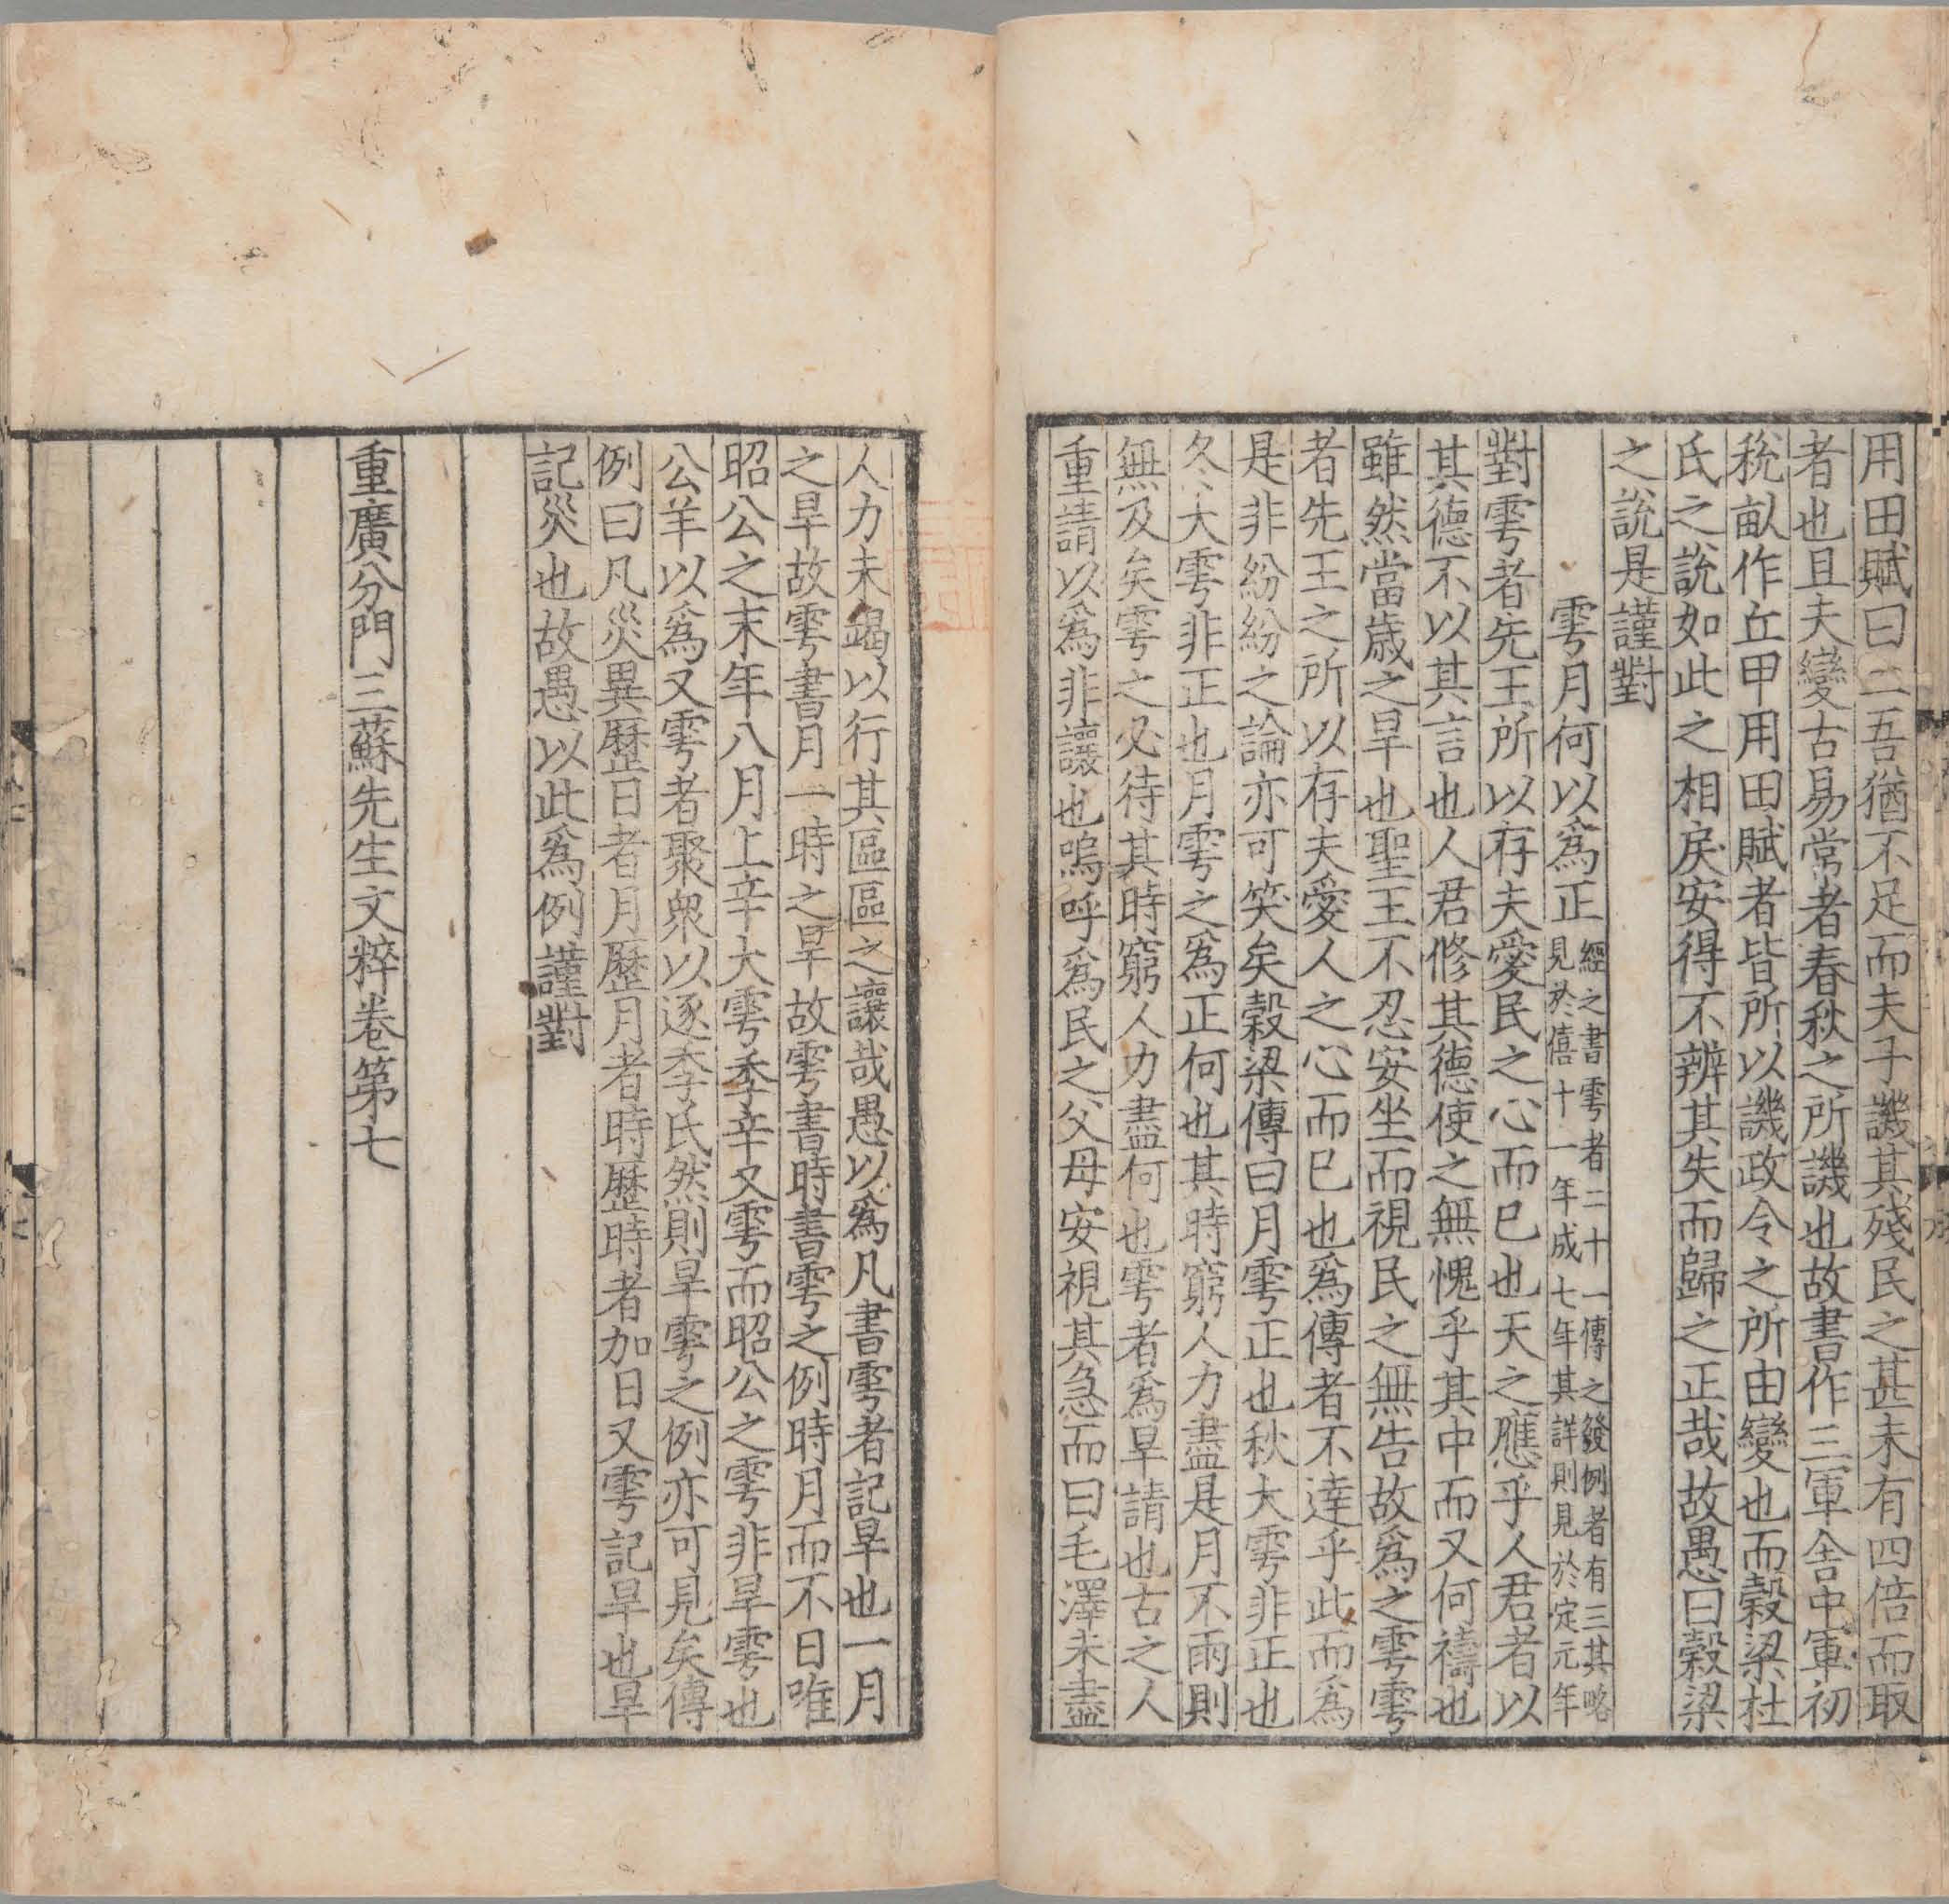 用田賦曰二吾猶不足而夫子譏其殘民之甚未有四倍而取
者也且夫變古易常者春秋之所譏也故書作三軍舍中軍初
稅畝作丘甲用田賦者皆所以譏政令之所由變也而穀梁杜
氏之說如此之相戾安得不辨其失而歸之正哉故愚曰穀梁
之說是謹對
雩月何以爲正經之書雩者二十一傳之發例者有三其略
見於僖十一年成七年其詳則見於定元年
對雩者先王所以存夫愛民之心而已也天之應乎人君者以
其德不以其言也人君修其德使之無愧乎其中而又何禱也
雖然當歲之旱也聖王不忍安坐而視民之無告故爲之雩雩
者先王之所以存夫愛人之心而已也爲傳者不達乎此而爲
是非紛紛之論亦可笑矣穀梁傳曰月雩正也秋大雩非正也
冬大雩非正也月雩之爲正何也其時窮人力盡是月不雨則
無及矣雩之必待其時窮人力盡何也雩者爲旱請也古之人
重請以爲非讓也嗚呼爲民之父母安視其急而曰毛澤未盡
人力未竭以行其區區之讓哉愚以爲凡書雩者記旱也一月
之旱故雩書月一時之旱故雩書時書雩之例時月而不日唯
昭公之末年八月上辛大雩季辛又雩而昭公之雩非旱雩也
公羊以爲又雩者聚衆以逐季氏然則旱雩之例亦可見矣傳
例曰凡災異歷日者月歷月者時歷時者加日又雩記旱也旱
記災也故愚以此爲例謹對
重廣分門三蘇先生文粹卷第七